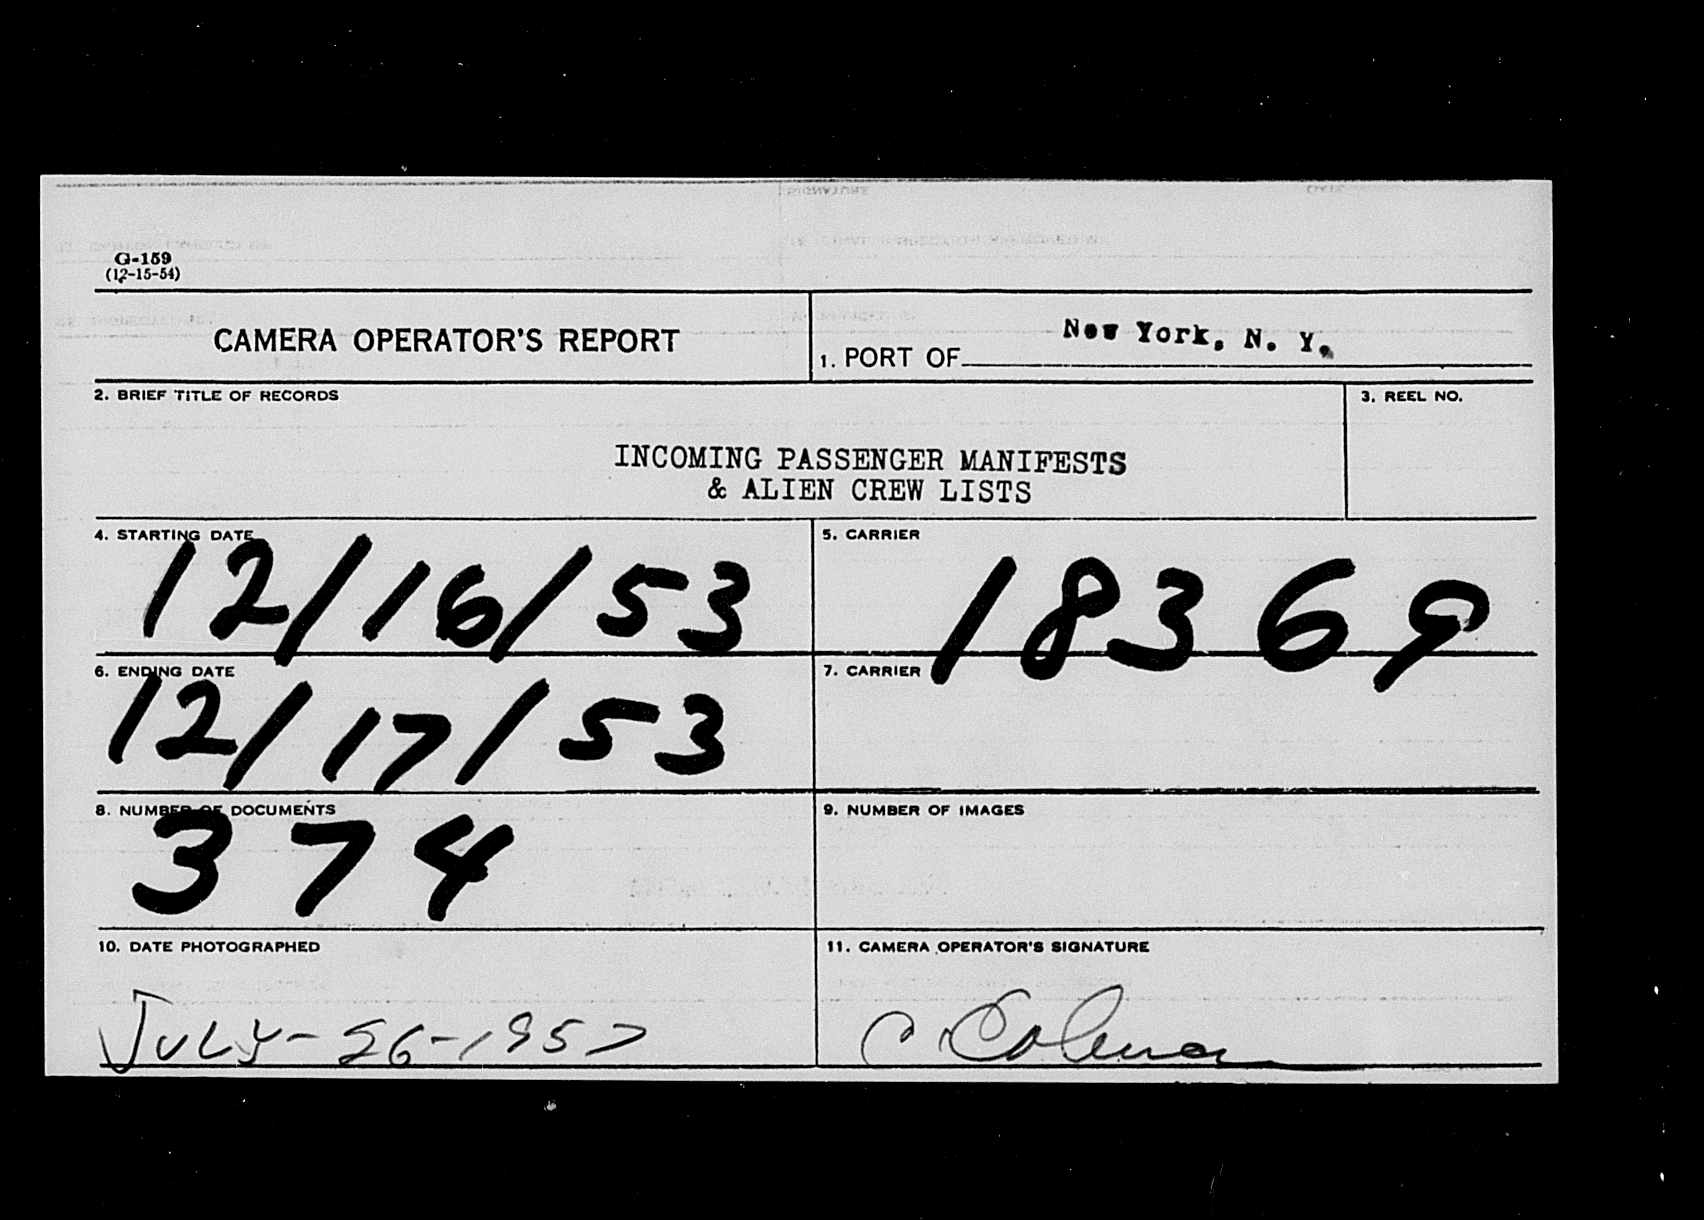 G-159
(12-15-54)
CAMERA OPERATOR'S REPORT
1. PORT OF New York, N. Y.
2. BRIEF TITLE OF RECORDS
3. REEL NO.
INCOMING PASSENGER MANIFESTS
& ALIEN CREW LISTS
4. STARTING DATE
12/16/53
5. CARRIER
18369
6. ENDING DATE
12/17/53
7. CARRIER
8. NUMBER OF DOCUMENTS
374
9. NUMBER OF IMAGES
10. DATE PHOTOGRAPHED
JULY-26-1957
11. CAMERA OPERATOR'S SIGNATURE
C Coleman